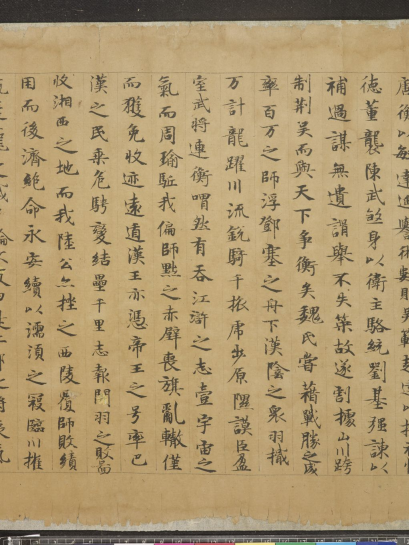 德董襲陳武煞身以衛主駱統劉基强諫以
補過謀無遺諝舉不失策故遂割據山川跨
制荆吴而與天下爭衡矣魏氏嘗藉戰勝之威
率百万之師浮鄧塞之舟下漢陰之衆羽檝
万計龍躍川流銳騎千旅虎步原隰謨臣盈
室武將連衡喟然有吞江滸之志壹宇宙之
氣而周瑜駈我偏師黜之赤壁喪旗亂轍僅
而獲免收迹遠遁漢王亦憑帝王之号率巴
漢之民乘危騁變結壘千里志報關羽之敗圖
收湘西之地而我陸公亦挫之西陵覆師敗績
困而後濟絶命永安續以濡湏之寇臨川摧